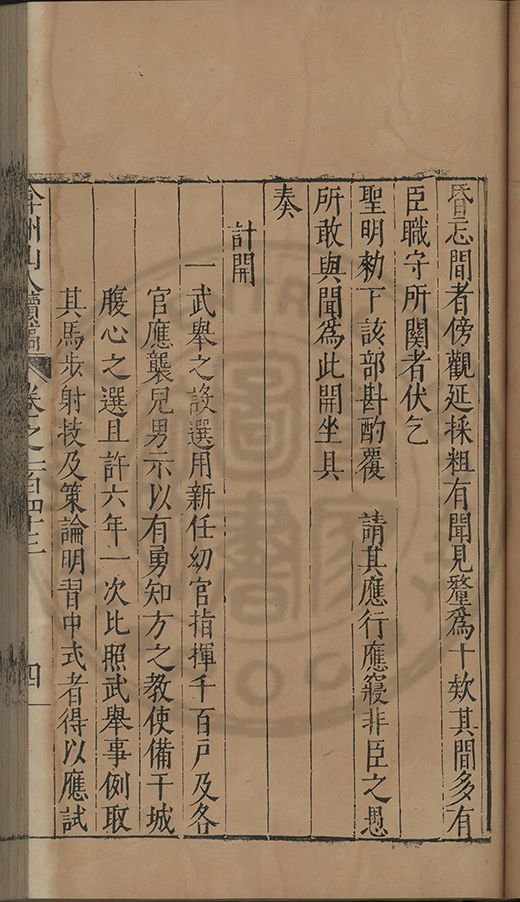 昏忘間者傍觀延採粗有聞見釐為十欵其間多有
臣職守所関者伏乞
聖明勑下該部斟酌覆　請其應行應寢非臣之愚
所敢與聞為此開坐具
奏
計開
一武舉之設選用新任幼官指揮千百戸及各
官應襲兒男示以有勇知方之教使備干城
腹心之選且許六年一次比照武舉事例取
其馬步射技及策論明習中式者得以應試
弇州山人續稿　卷之一百四十三　四